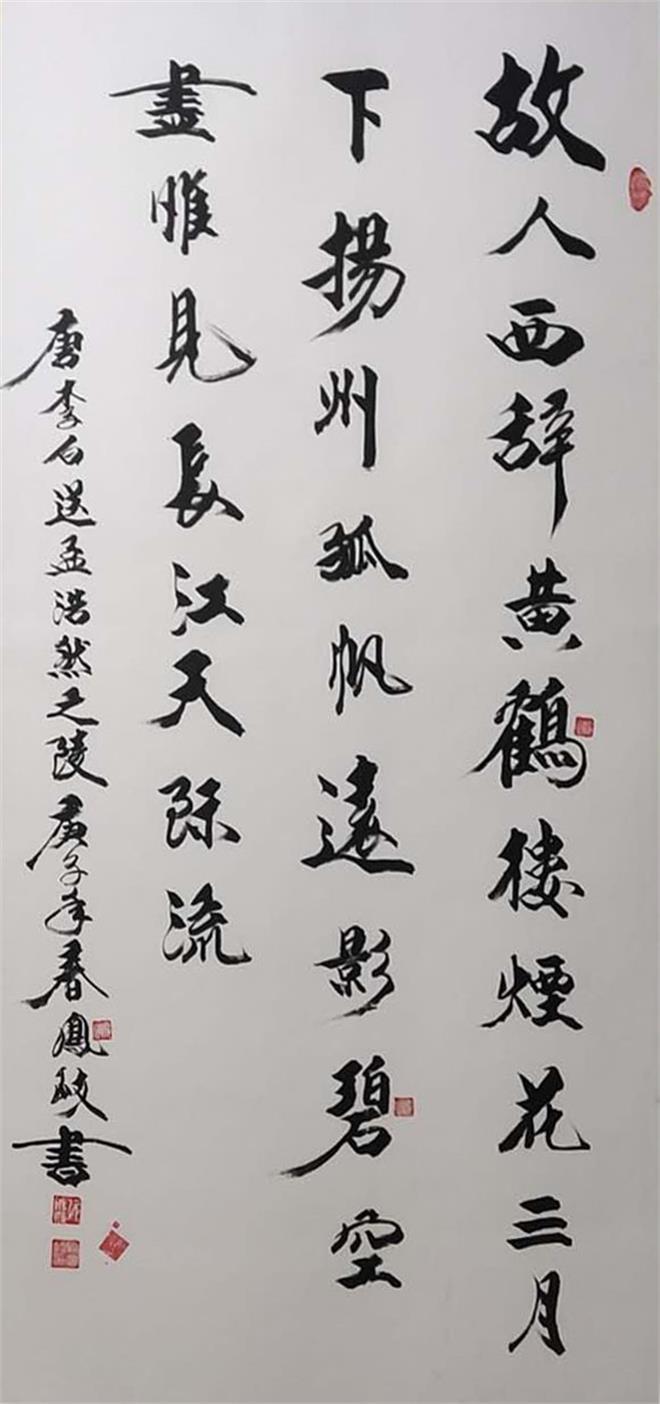 故人西辞黄鶴楼煙花三月
下揚州孤帆遠影碧空
盡惟見長江天際流
唐李白送孟浩然之陵庚子年春鳳岐書